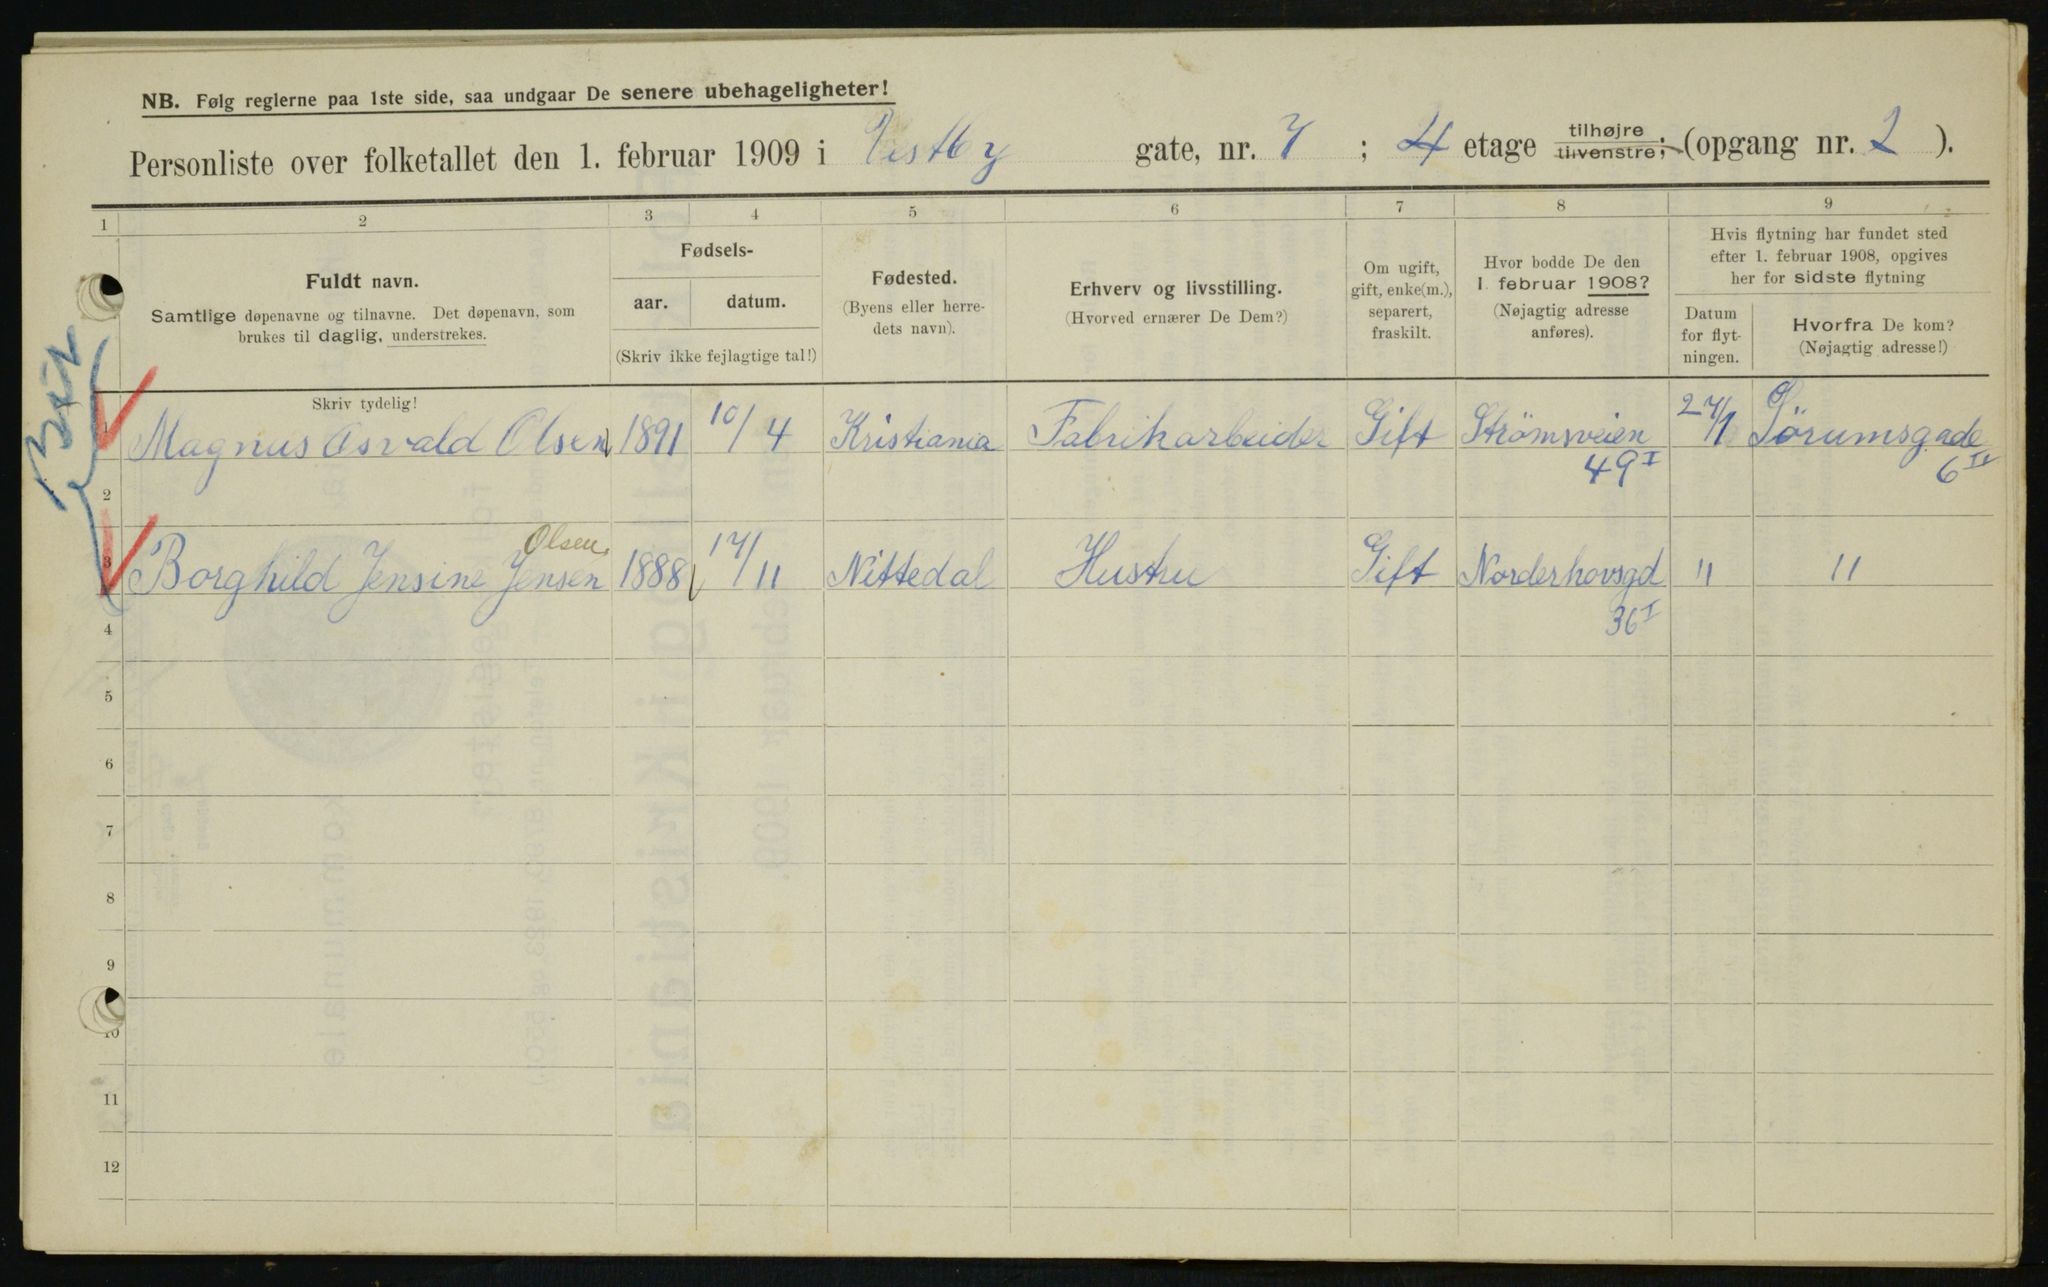 NB. Følg reglerne paa 1ste side, saa undgaar De senere ubehageligheter!
Personliste over folketallet den 1. februar 1909 i Vestby gate, nr. 7 ; 4 etage tilhøjre tilvenstre; (opgang nr. 2 ).
1 2 3 4 5 6 7 8 9
Fuldt navn.
Samtlige døpenavne og tilnavne. Det døpenavn, som
brukes til daglig, understrekes.
Skriv tydelig!
Fødsels-
aar. datum.
(Skriv ikke fejlagtige tal!)
Fødested.
(Byens eller herre-
dets navn).
Erhverv og livsstilling.
(Hvorved ernærer De Dem?)
Om ugift,
gift, enke(m.),
separert,
fraskilt.
Hvor bodde De den
1. februar 1908?
(Nøjagtig adresse
anføres).
Hvis flytning har fundet sted
efter 1. februar 1908, opgives
her for sidste flytning
Datum
for flyt-
ningen.
Hvorfra De kom?
(Nøjagtig adresse!)
1 Magnus Osvald Olsen 1891 10/4 Kristiania Fabrikarbeider Gift Strömsveien 49 I 27/1 Sörumsgade 6 II
2
Olsen
3 Borghild Jensine Jensen 1888 17/11 Nittedal Hustru Gift Norderhovsgd 36 I " "
4
5
6
7
8
9
10
11
12